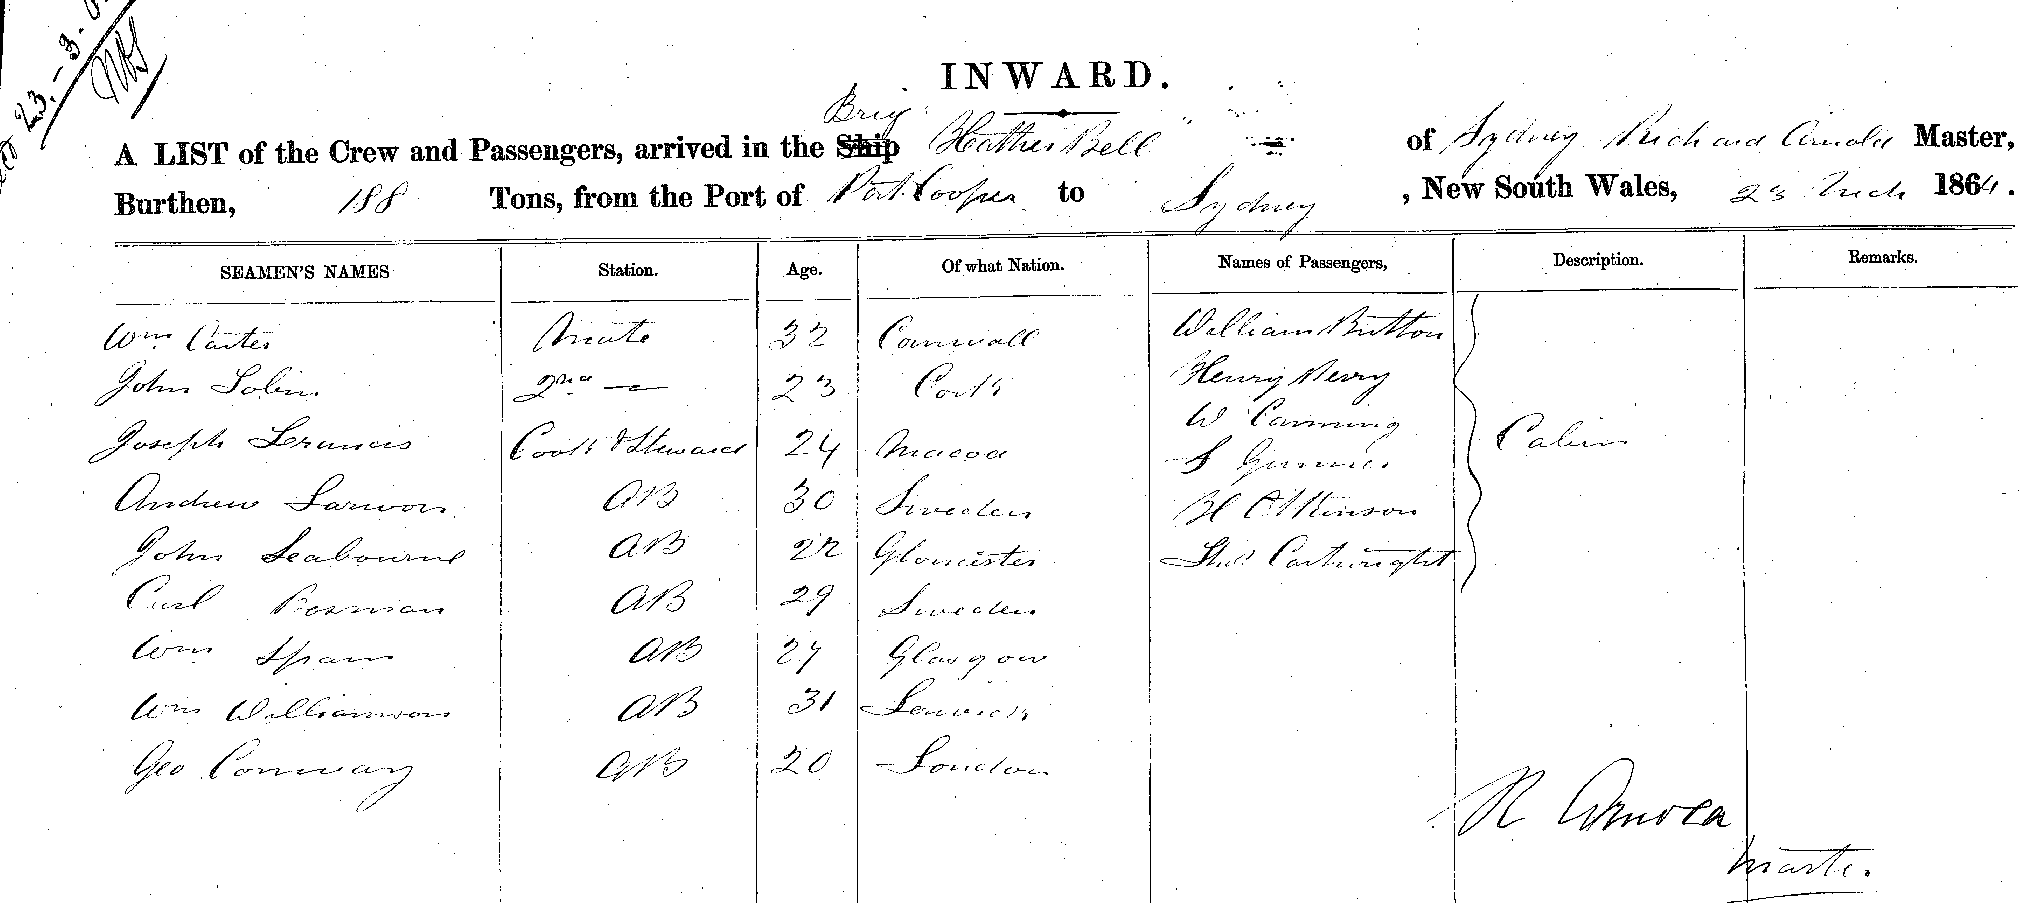 23.-3.
INWARD.
Brig
A LIST of the Crew and Passengers, arrived in the Ship Heather Bell of Sydney Richard Arnold Master,
Burthen, 188 Tons, from the Port of Port Cooper to Sydney , New South Wales, 23 Mch 1864.
SEAMEN'S NAMES Station. Age. Of what Nation. Names of Passengers, Description. Remarks.
Wm Carter Mate 32 Cornwall William Button
John 2nd — 23 Cork Henry Perry
Joseph Cook & Steward 24 Macoa W Canning
S Cabin
Andrew Larwon AB 30 Sweden H Atkinson
John Seabourne AB 22 Gloucester Thos Cartwright
Carl Bosman AB 29 Sweden
Wm Spain AB 27 Glasgow
Wm Williamson AB 31 Lerwick
Geo Conway AB 20 London
R Arnold
Master